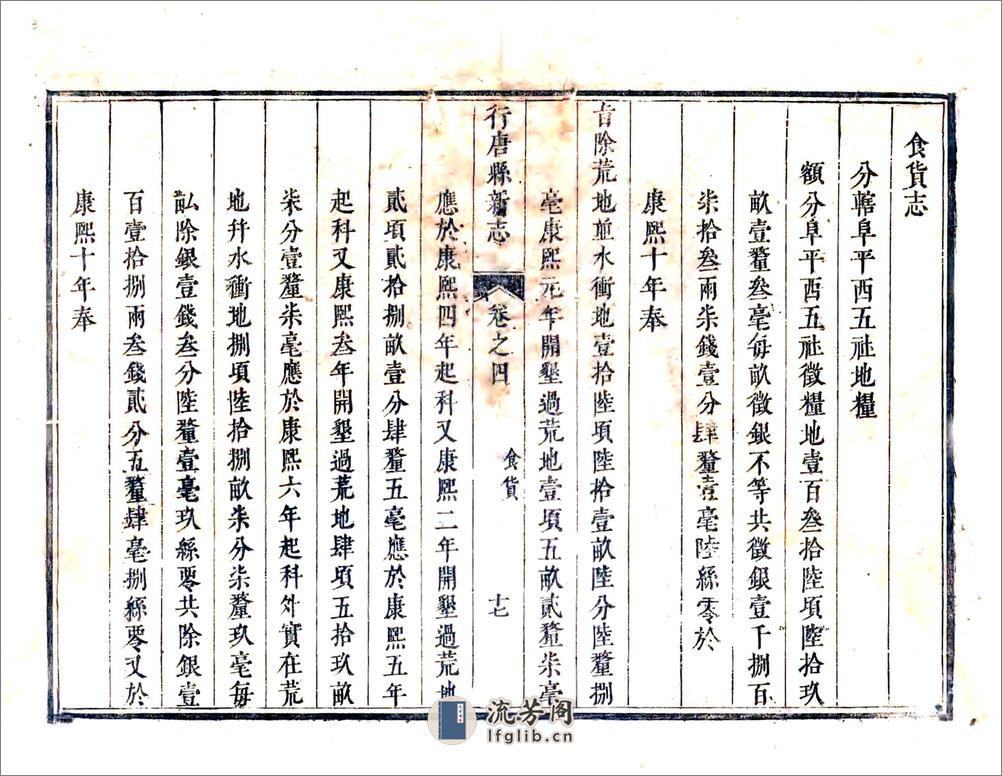 食貨志
分轄阜平西五社地糧
額分阜平西五社徵糧地壹百叁拾陸頃陸拾玖
畝壹釐叁毫每畝徵銀不等共徵銀壹千捌百
柒拾叁兩柒錢壹分肆釐壹毫陸絲零於
康熙十年奉
旨除荒地並水衝地壹拾陸頃陸拾壹畝陸分陸釐捌
毫康熙元年開墾過荒地壹頃五畝貳釐柒毫
行唐縣新志
卷之四
食貨
十七
應於康熙四年起科又康熙二年開墾過荒地
貳頃貳拾捌畝壹分肆釐五毫應於康熙五年
起科又康熙叁年開墾過荒地肆頃五拾玖畝
柒分壹釐柒毫應於康熙六年起科外實在荒
地幷水衝地捌頃陸拾捌畝柒分柒釐玖毫每
畝除銀壹錢叁分陸釐壹毫玖絲零共除銀壹
百壹拾捌兩叁錢貳分五釐肆毫捌絲零又於
康熙十年奉
流芳阁
lfglib.cn